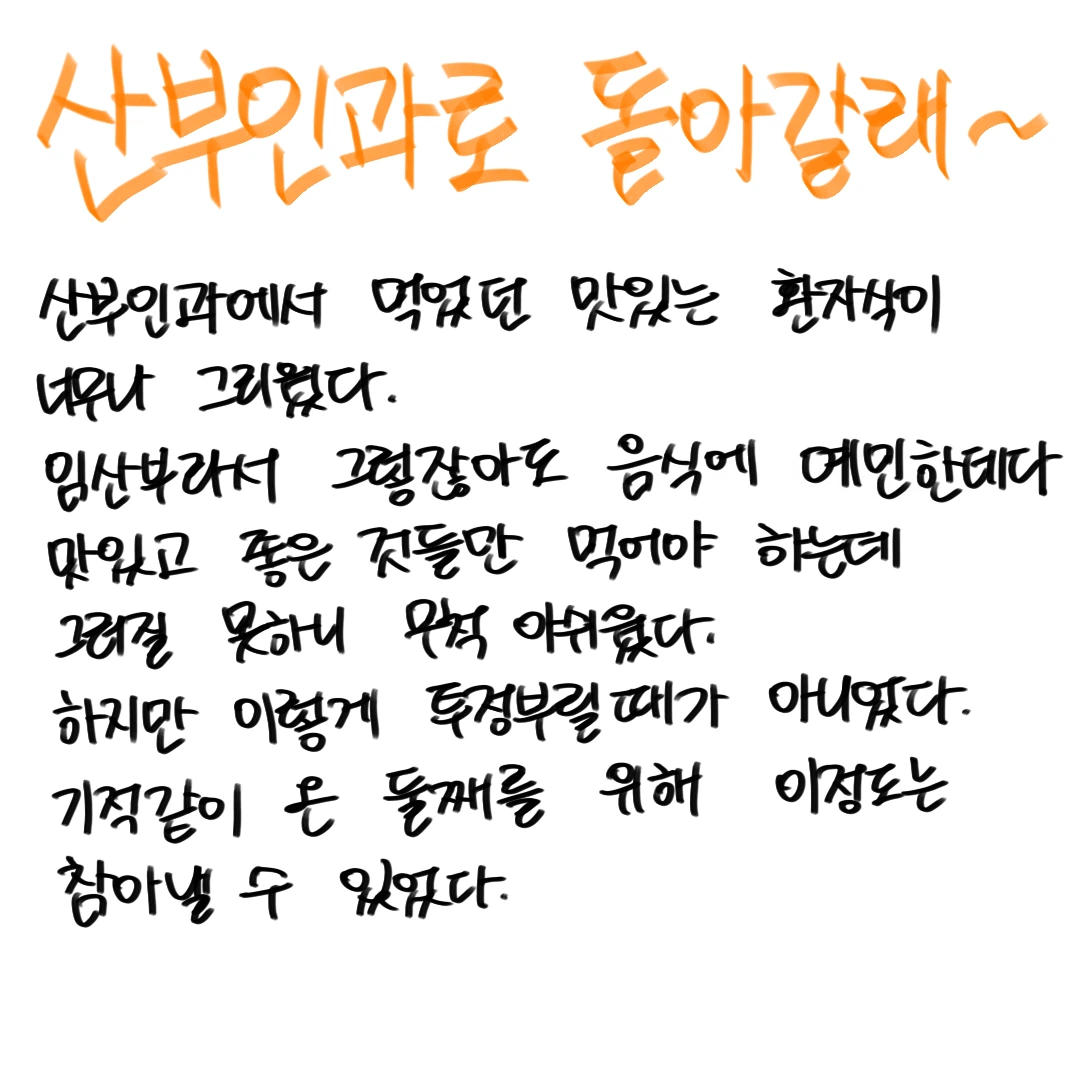 산부인과로 돌아갈래~
산부인과에서 먹었던 맛있는 환자식이
너무나 그리웠다.
임산부라서 그렇잖아도 음식에 예민한데다
맛있고 좋은 것들만 먹어야 하는데
그러질 못하니 무척 아쉬웠다.
하지만 이렇게 투정부릴때가 아니었다.
기적같이 온 둘째를 위해 이정도는
참아낼 수 있었다.